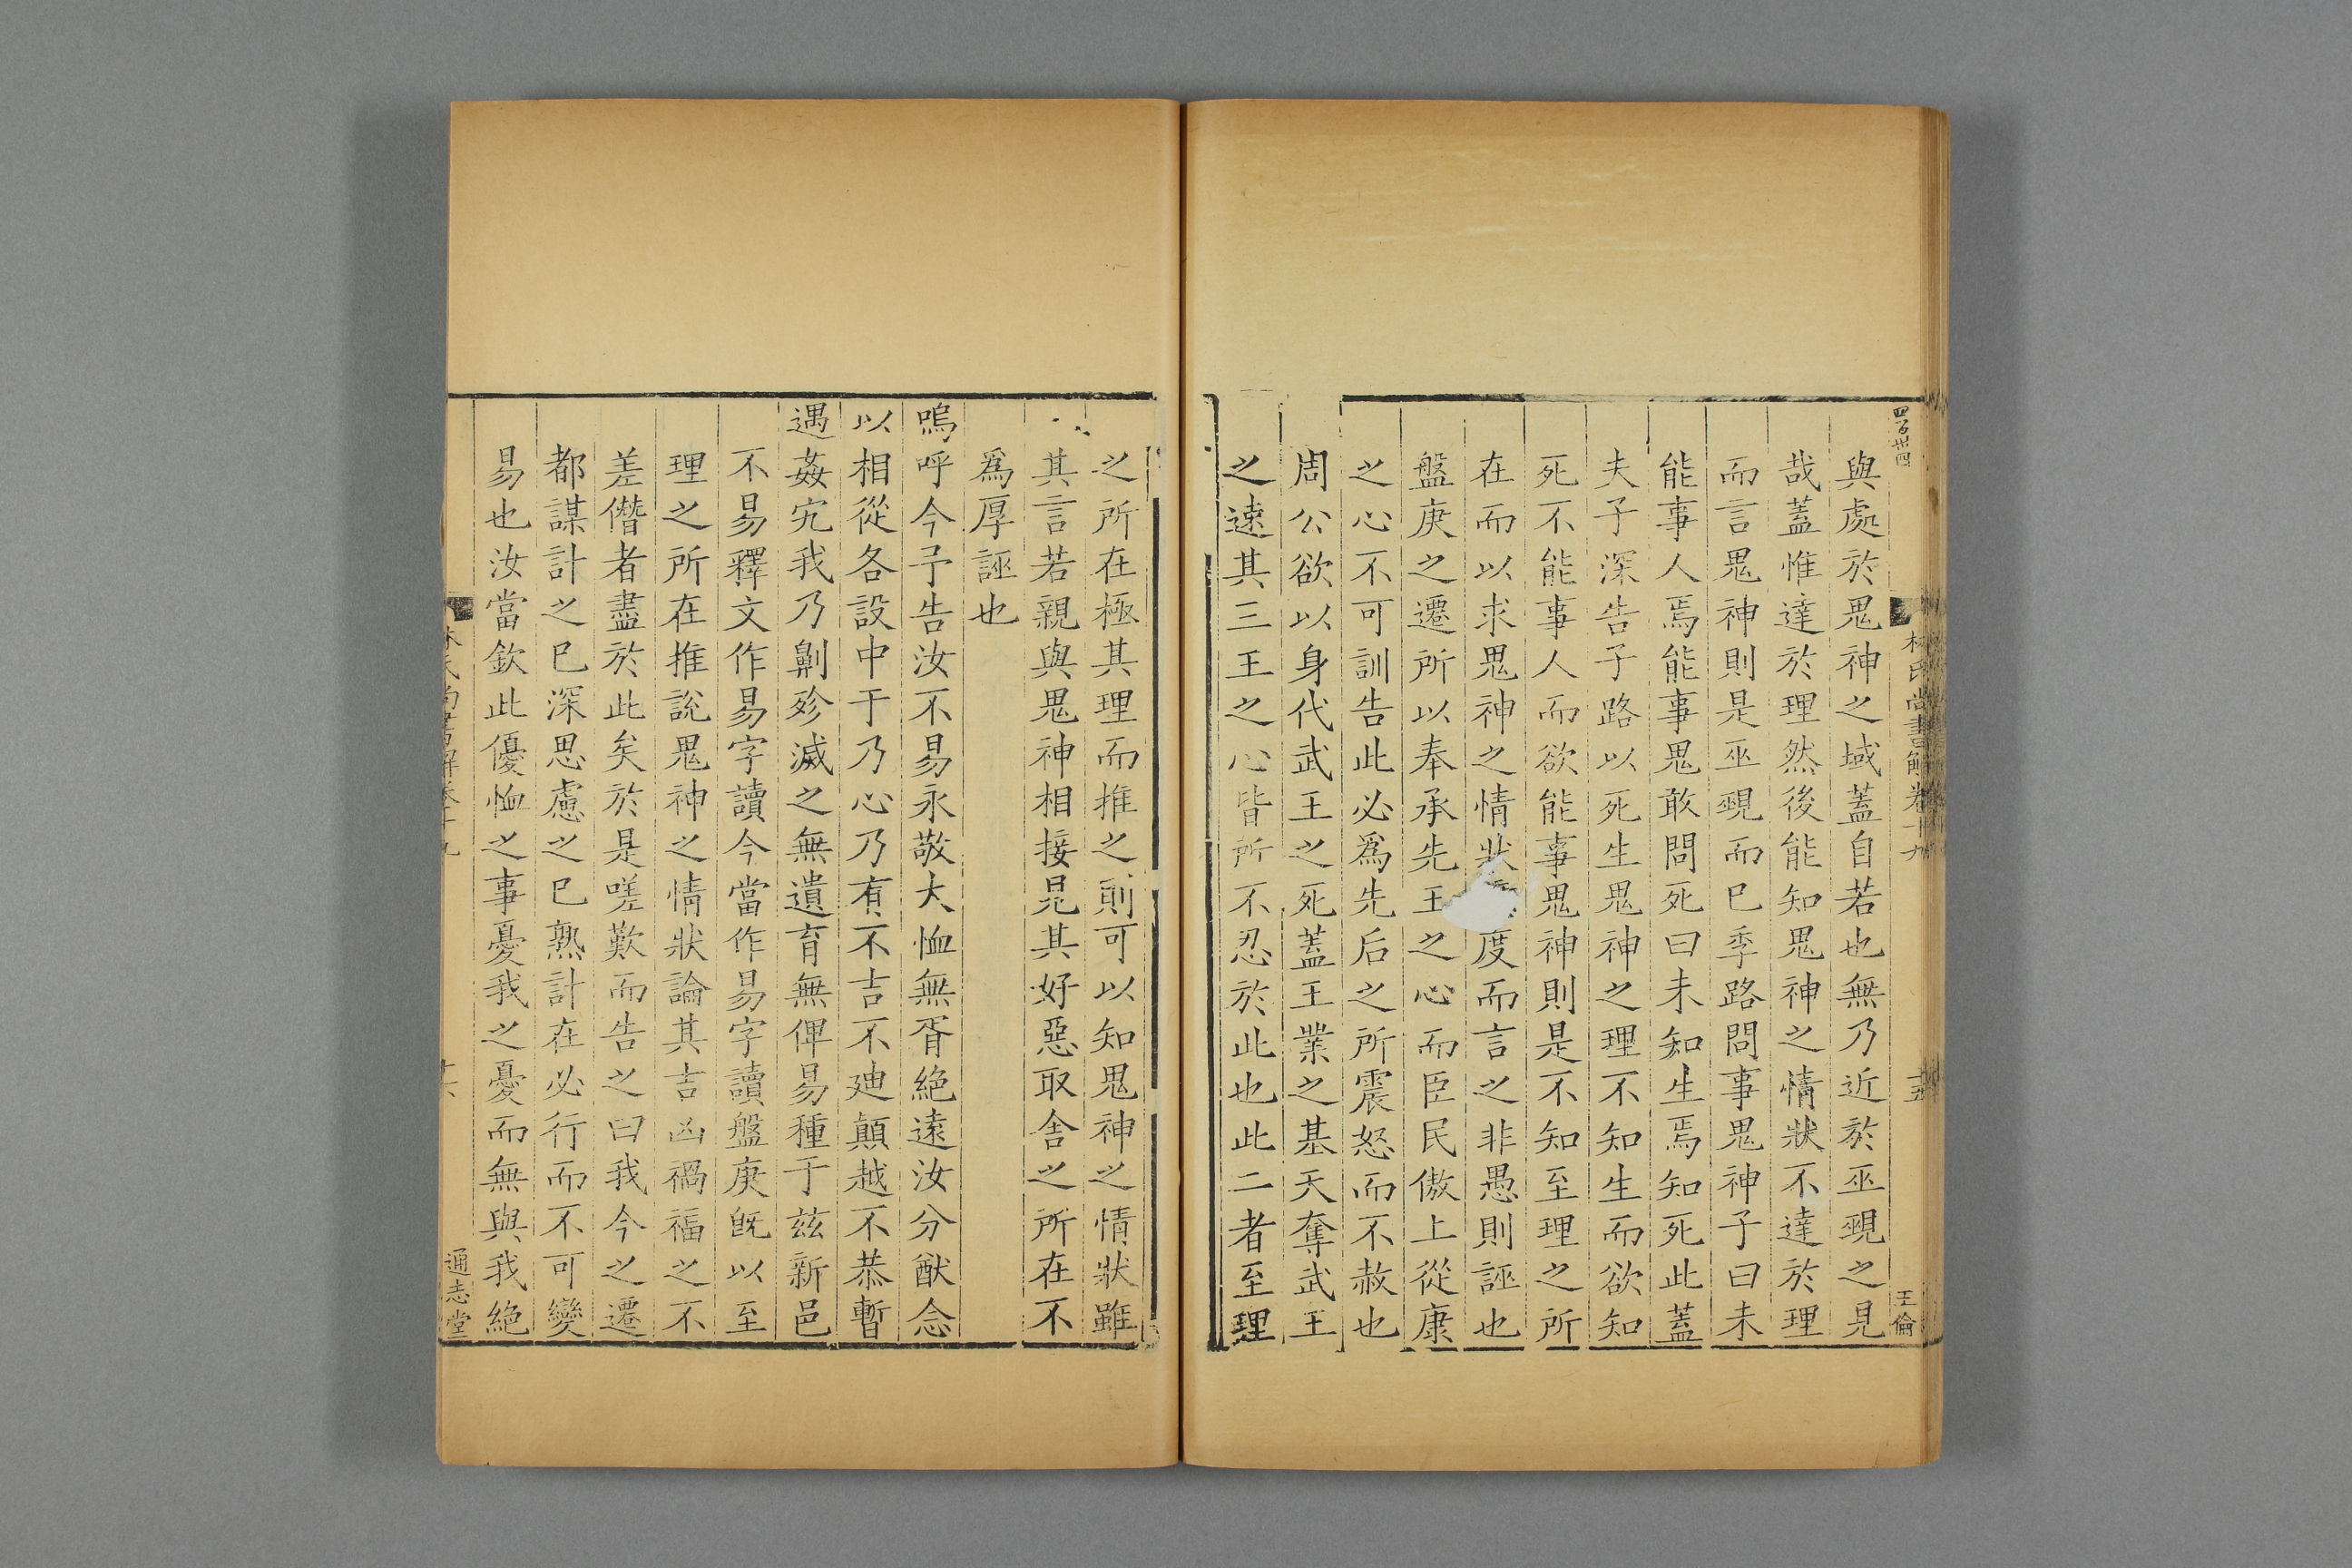 四百卅四
林氏尚書解卷十九
十五
王倫
與處於鬼神之域蓋自若也無乃近於巫覡之見
哉蓋惟達於理然後能知鬼神之情狀不達於理
而言鬼神則是巫覡而已季路問事鬼神子曰未
能事人焉能事鬼敢問死曰未知生焉知死此蓋
夫子深告子路以死生鬼神之理不知生而欲知
死不能事人而欲能事鬼神則是不知至理之所
在而以求鬼神之情狀度而言之非愚則誣也
盤庚之遷所以奉承先王之心而臣民傲上從康
之心不可訓告此必爲先后之所震怒而不赦也
周公欲以身代武王之死蓋王業之基天奪武王
之速其三王之心皆所不忍於此也此二者至理
之所在極其理而推之則可以知鬼神之情狀雖
其言若親與鬼神相接見其好惡取舍之所在不
爲厚誣也
嗚呼今予告汝不易永敬大恤無胥絶遠汝分猷念
以相從各設中于乃心乃有不吉不廸顚越不恭暫
遇姦宄我乃劓殄滅之無遺育無俾易種于兹新邑
不易釋文作易字讀今當作易字讀盤庚旣以至
理之所在推說鬼神之情狀論其吉凶禍福之不
差僭者盡於此矣於是嗟歎而告之曰我今之遷
都謀計之已深思慮之已熟計在必行而不可變
易也汝當欽此優恤之事憂我之憂而無與我絶
林氏尚書解卷十九
十六
通志堂